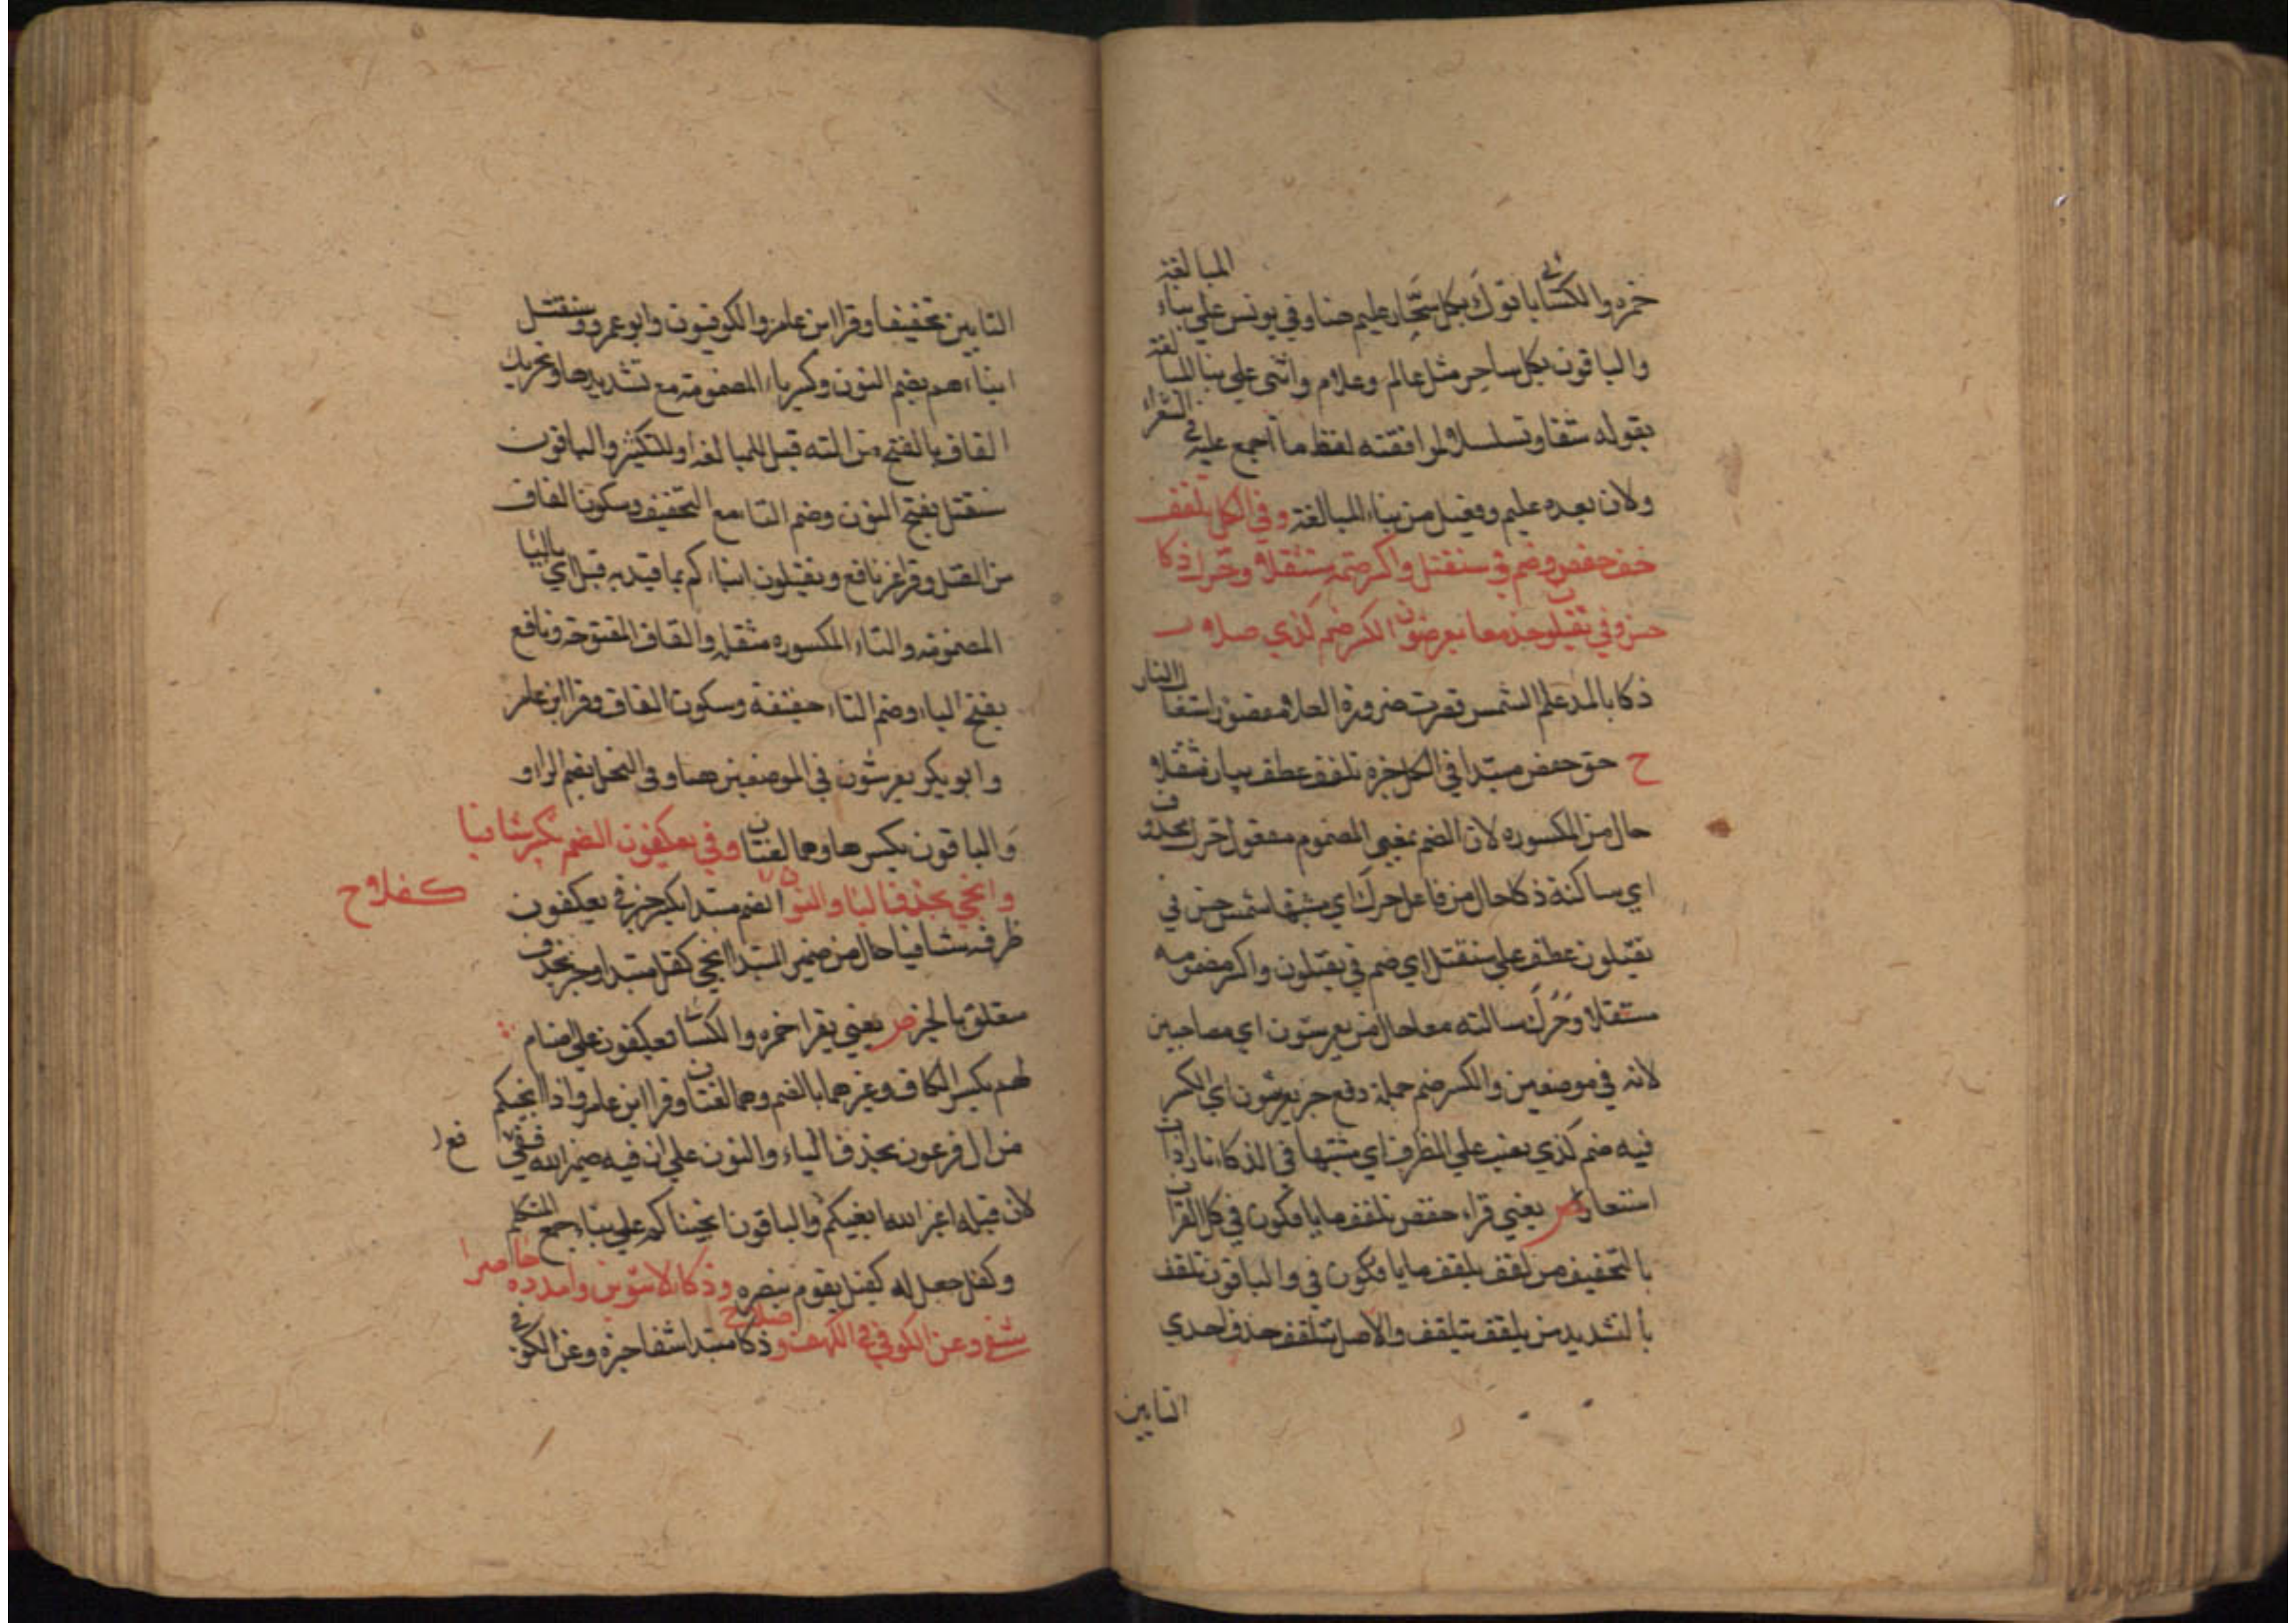 حمزه والكسائي ياتوك بكل سحار عليم هنا وفي يونس علي بناء المبالغة
والباقون بكل ساحر مثل عالم وعلام واثني علي بنا المبالغة
بقوله شفا وتسلسلا لموافقته لفظ ما اجمع عليه في الشعرا
ولان بعده عليم وفعيل من بناء المبالغة وفي الكل تلقف
خف حفص وضم في سنقتل واكسر ضمه متثقلا وحرك ذكا
حسن وفي يقتلون خذ معا يعرشون الكسر ضم كذي صلا
ذكا بالمد علم الشمس قصرت ضرورة الصلا مقصورا استعار النار
ح خف حفص مبتدا في الكل خبره تلقف عطف بيان متثقلا
حال من المكسوره لان الضم بمعني المضموم مفعول حرك محذوف
اي ساكنة ذكا حال من فاعل حرك اي مشبها شمس حسن في
يقتلون عطف علي سنقتل اي ضم في يقتلون واكسر مضمومه
متثقلا وحرك ساكنه معا حال من يعرشون اي مصاحبين
لانه في موضعين والكسر ضم جملة وقع خبر يعرشون اي الكسر
فيه ضم كذي نصب علي الظرف اي مشبها في الذكاء نار ذات
استعار ص يعني قراء حفص تلقف ما يافكون في كل القران
بالتخفيف من لقف يلقف ما يافكون في والباقون تلقف
بالتشديد من يلقف تتلقف والاصل تتلقف حذف احدي
التايين
التايين تخفيفا وقرا ابن عامر والكوفيون وابو عمرو سنقتل
ابناءهم بضم النون وكسر التاء المضمومة مع تشديدها وتحريك
القاف بالفتح من التقتيل للمبالغة او للتكثير والباقون
سنقتل بفتح النون وضم التاء مع التخفيف وسكون القاف
من القتل وقرا غير نافع ويقتلون ابناءكم بما قيد به قبل اي بالياء
المضمومة والتاء المكسوره مثقلة والقاف المفتوحة ونافع
بفتح الياء وضم التاء خفيفة وسكون القاف وقرا ابن عامر
وابو بكر يعرشون في الموضعين هنا وفي النحل بضم الراء و
والباقون بكسرها وهما لغتان وفي يعكفون الضم يكسر شافيا
وانجي بحذف اليا والنون كفلا ح الضم مبتدا يكسر خبر في يعكفون
ظرفه شافيا حال من ضمير المبتدا انجي كفل مبتدا وخبر بحذف
متعلق بالخبر ص يعني يقرا حمزه والكسائي يعكفون علي اصنام
لهم بكسر الكاف وغيرهما بالضم وهما لغتان وقرا ابن عامر واذ انجيكم
من ال فرعون بحذف الياء والنون علي ان فيه ضمير الله تعالي
لان قبله اغير الله ابغيكم والباقون انجيناكم علي بناء جمع المتكلم
وكفل جعل له كفيل يقوم بنصره ودكا لا تنوين وامدده هامزا
شفي وعن الكوفي في الكهف وصلا ح دكا مبتدا شفا خبره وعن الكوفي